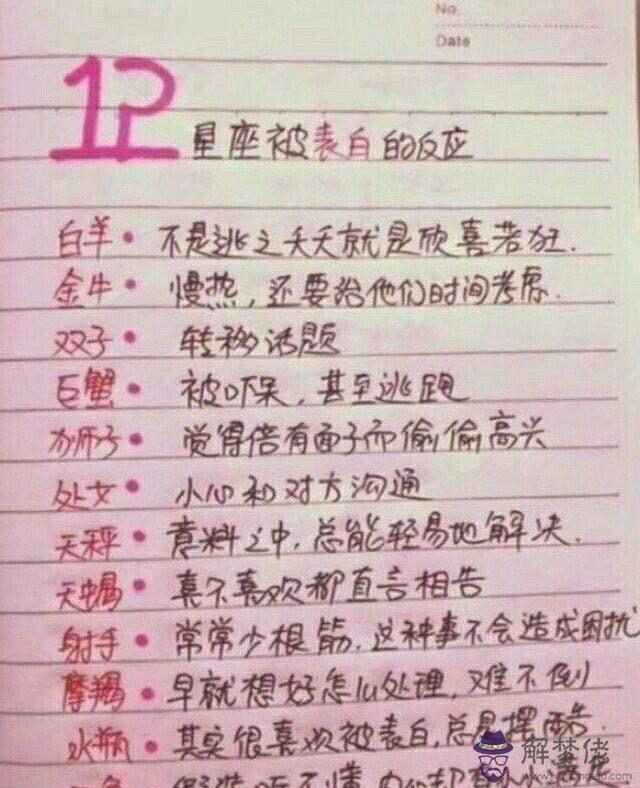 No.
Date
12星座被表白的反应
白羊• 不是逃之夭夭就是欣喜若狂.
金牛• 慢热,还要给他们时间考虑.
双子• 转移话题
巨蟹• 被吓呆,甚至逃跑
狮子• 觉得倍有面子而偷偷高兴
处女• 小心和对方沟通
天秤• 意料之中,总能轻易地解决.
天蝎• 喜不喜欢都直言相告
射手• 常常少根筋,这种事不会造成困扰
摩羯• 早就想好怎么处理,难不倒
水瓶• 其实很喜欢被表白,总是摆酷.
解梦佬